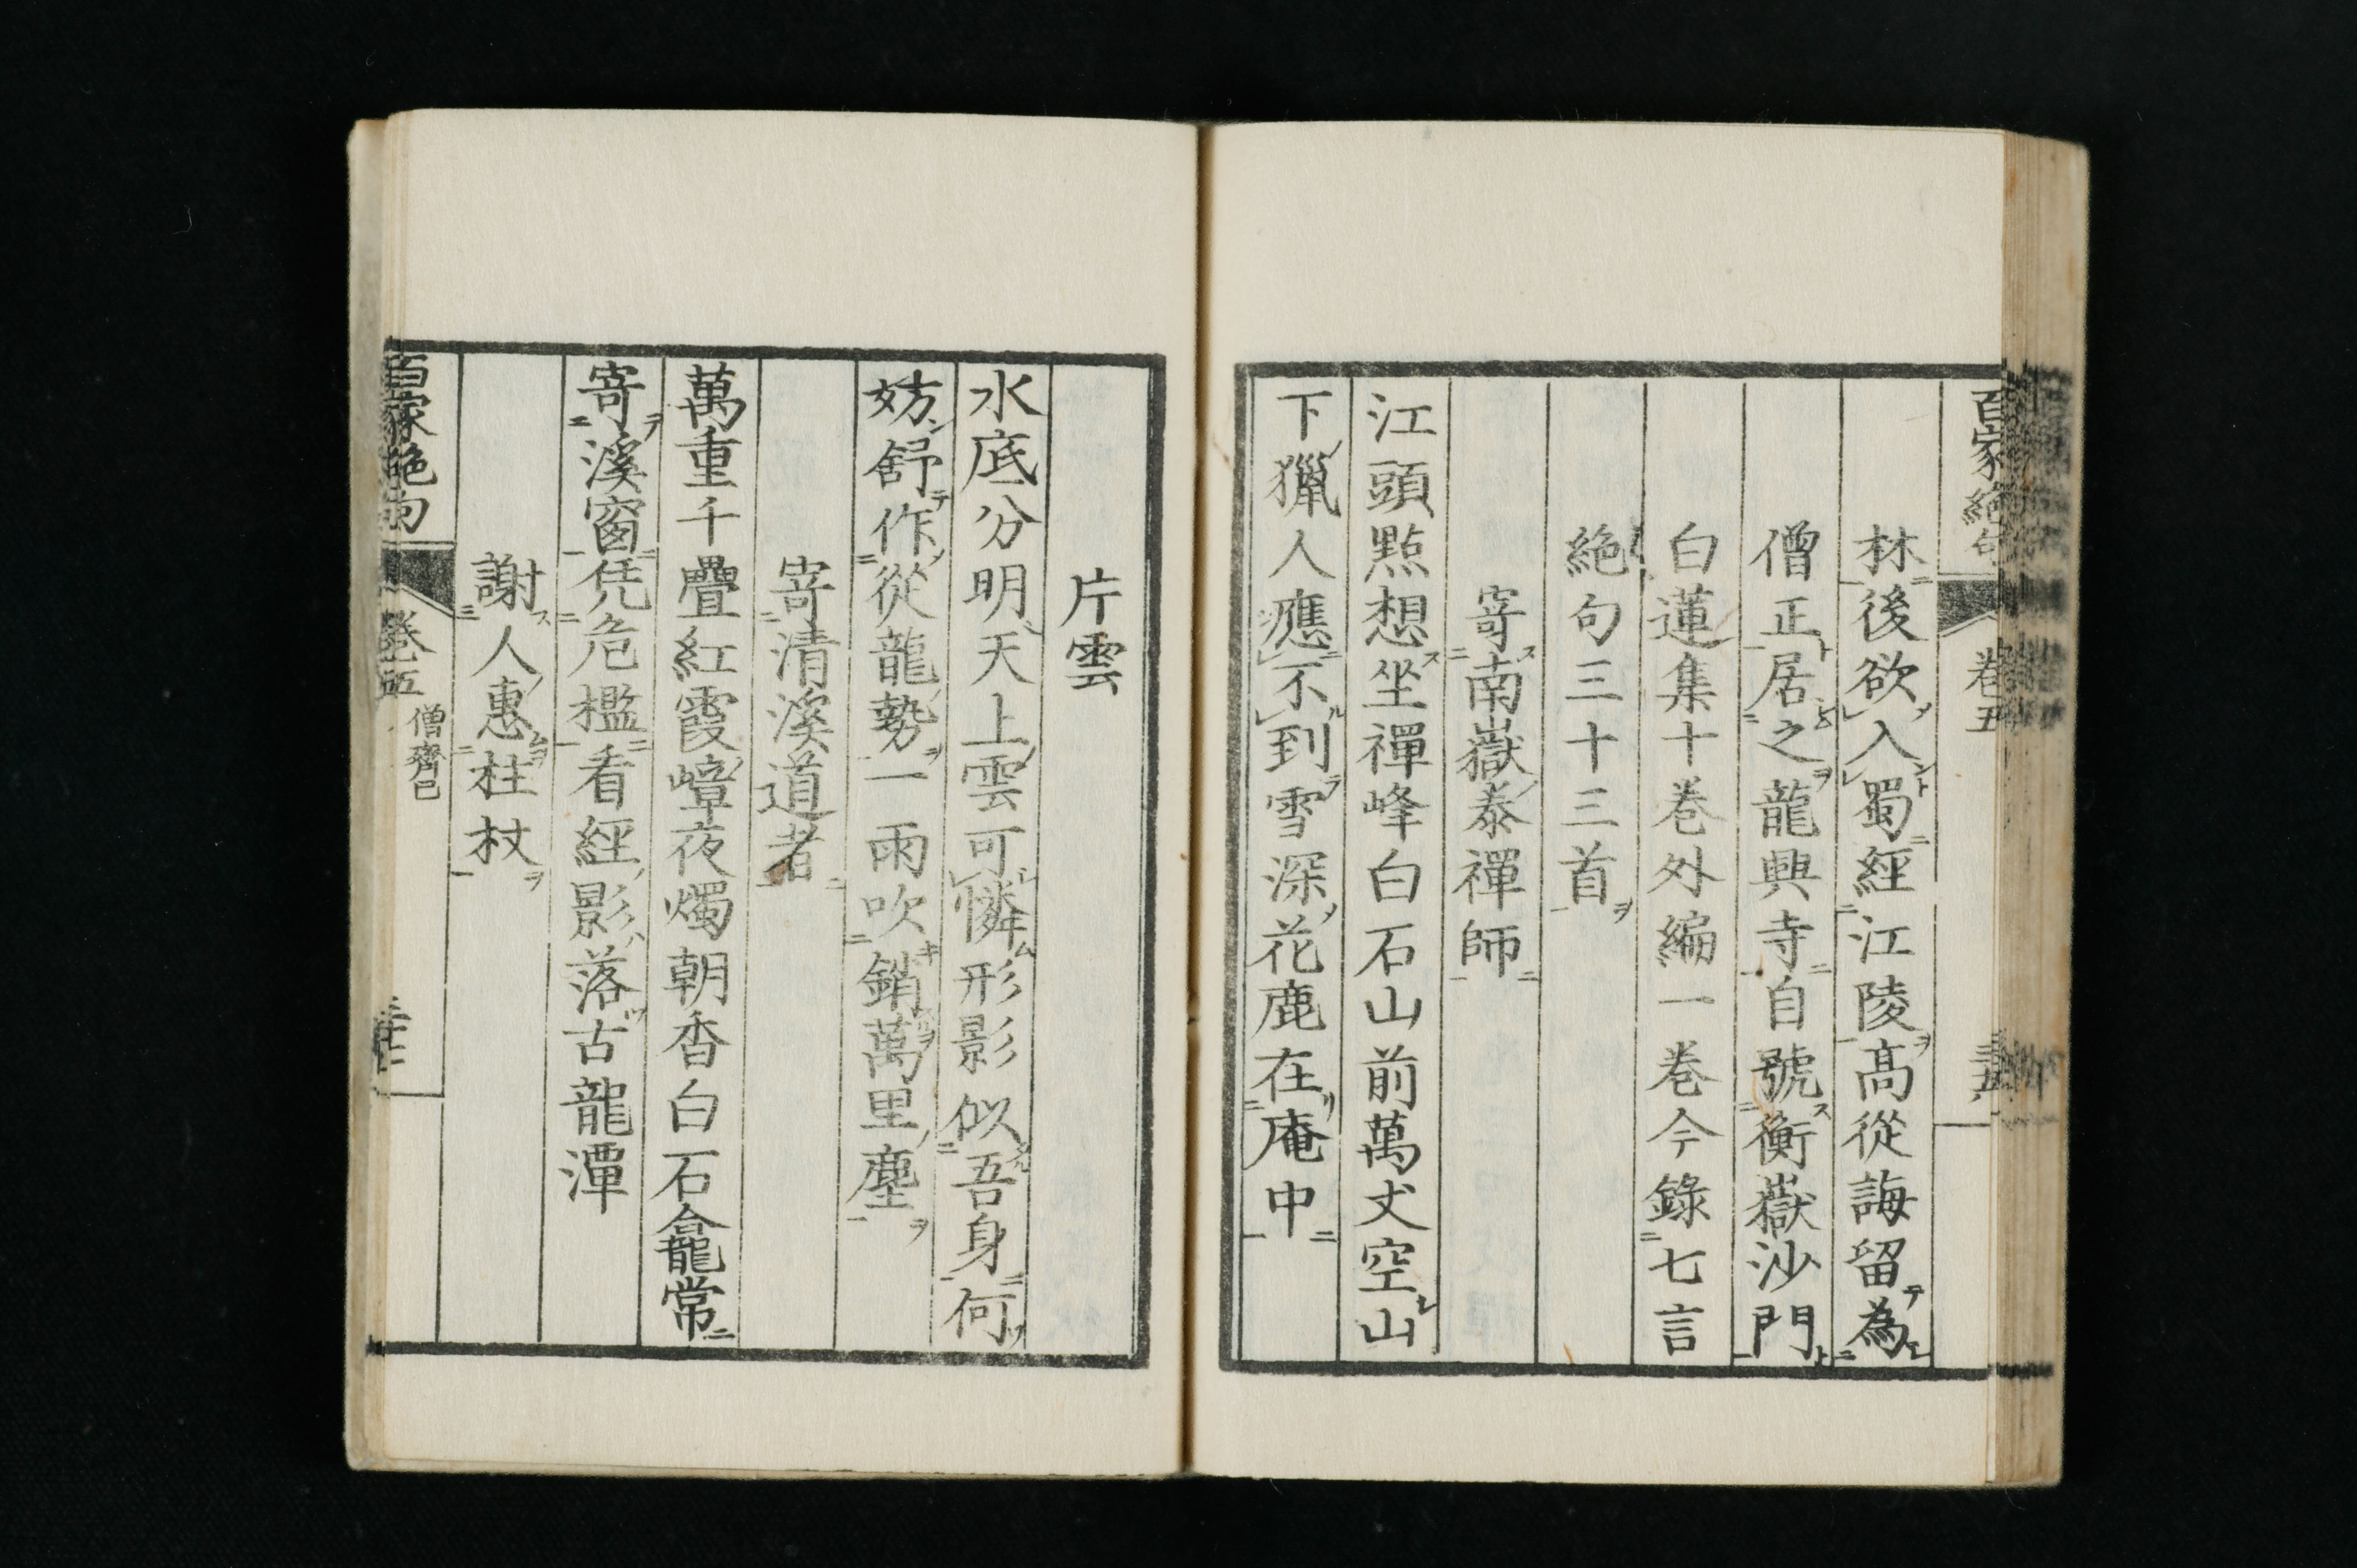 百家絶句 卷五
林後欲入蜀經江陵髙從誨留為
僧正居之龍興寺自號衡嶽沙門
白蓮集十卷外編一卷今錄七言
絶句三十三首
寄南嶽泰禪師
江頭㸃想坐禪峰白石山前萬丈空山
下獵人應不到雪深花鹿在庵中
片雲
水底分明天上雲可憐形影似吾身何
妨舒作從龍勢一雨吹銷萬里塵
寄清溪道者
萬重千疊紅霞嶂夜燭朝香白石龕常
寄溪窗凭危檻看經影落古龍潭
謝人惠柱杖
百家絶句 卷五 僧齊己